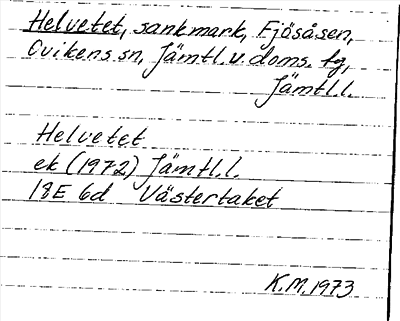 Helvetet, sankmark, Fjösåsen,
Ovikens sn, Jämtl. v. doms. tg,
Jämtl.l.
Helvetet
ek (1972) Jämtl.l.
18E 6d Västertaket
K.M. 1973